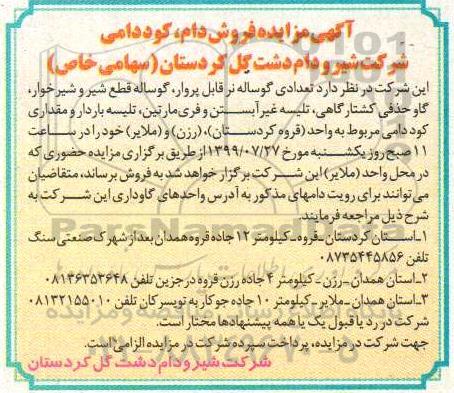 آگهی مزایده فروش دام، کود دامی
شرکت شیر و دام دشت گل کردستان (سهامی خاص)
این شرکت در نظر دارد تعدادی گوساله نر قابل پروار، گوساله قطع شیر و شیرخوار،
گاو حذفی کشتارگاهی، تلیسه غیرآبستن و فری مارتین، تلیسه باردار و مقداری
کود دامی مربوط به واحد (قروه کردستان)، (رزن) و (ملایر) خود را در ساعت
۱۱ صبح روز یکشنبه مورخ ۱۳۹۹/۰۷/۲۷ از طریق برگزاری مزایده حضوری که
در محل واحد (ملایر) این شرکت برگزار خواهد شد به فروش برساند، متقاضیان
می‌توانند برای رویت دامهای مذکور به آدرس واحدهای گاوداری این شرکت به
شرح ذیل مراجعه فرمایند.
۱_استان کردستان_قروه_کیلومتر ۱۲ جاده قروه همدان بعد از شهرک صنعتی سنگ
تلفن ۰۸۷۳۵۴۴۵۸۵۶
۲_استان همدان_رزن_کیلومتر ۴ جاده رزن قروه درجزین تلفن ۰۸۱۳۶۳۵۳۶۴۸
۳_استان همدان_ملایر_کیلومتر ۱۰ جاده جوکار به تویسرکان تلفن ۰۸۱۳۲۱۵۵۰۱۰
شرکت در رد یا قبول یک یا همه پیشنهادها مختار است.
جهت شرکت در مزایده، پرداخت سپرده شرکت در مزایده الزامی است.
شرکت شیر و دام دشت گل کردستان